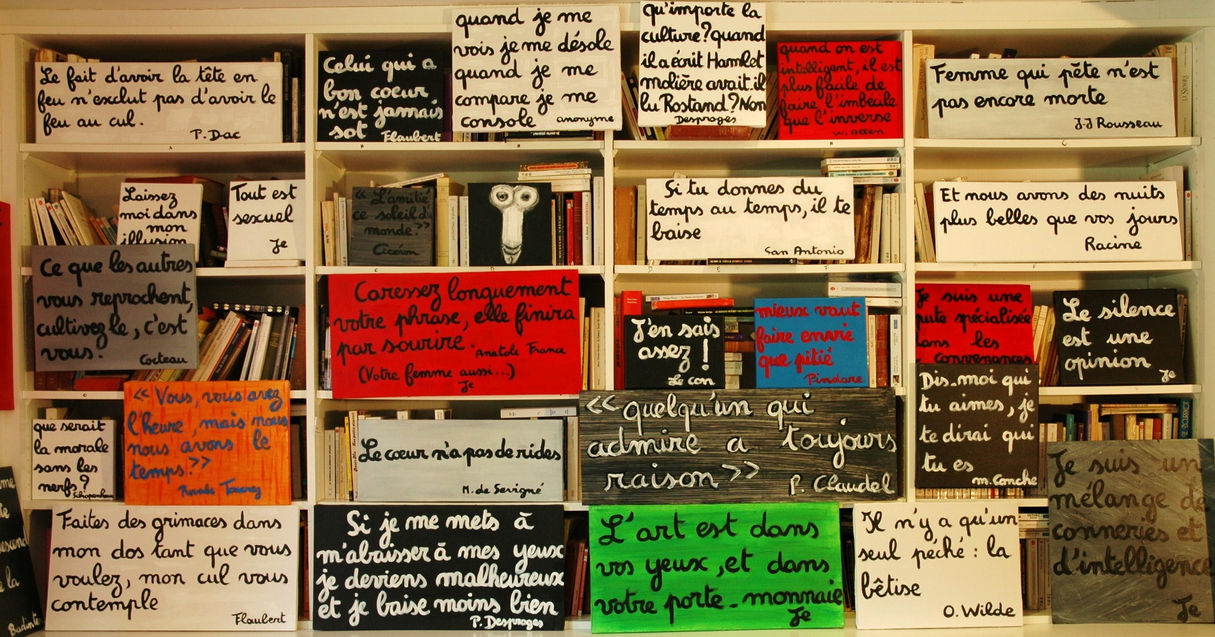 Le fait d'avoir la tête en
feu n'exclut pas d'avoir le
feu au cul.
P. Dac
Celui qui a
bon coeur
n'est jamais
sot Flaubert
quand je me
vois je me désole
quand je me
compare je me
console anonyme
qu'importe la
culture? quand
il a écrit Hamlet
molière avait.il
lu Rostand? Non
Desproges
quand on est
intelligent, il est
plus facile de
faire l'imbécile
que l'inverse
W. Allen
Femme qui pète n'est
pas encore morte
J.J Rousseau
Laissez
moi dans
mon
illusion
Tout est
sexuel
Je
« L'amitié
ce soleil du
monde. »
Cicéron
Si tu donnes du
temps au temps, il te
baise
San Antonio
Et nous avons des nuits
plus belles que vos jours
Racine
Ce que les autres
vous reprochent,
cultivez le, c'est
vous.
Cocteau
Caressez longuement
votre phrase, elle finira
par sourire. Anatole France
(Votre femme aussi...)
Je
J'en sais
assez !
Le con
mieux vaut
faire envie
que pitié
Pindare
Je suis une
pute spécialisée
dans les
convenances
Le silence
est une
opinion
Je
que serait
la morale
sans les
nerfs?
Schopenhauer
« Vous, vous avez
l'heure, mais nous
nous avons le
temps. »
Le coeur n'a pas de rides
M. de Sévigné
« quelqu'un qui
admire a toujours
raison »
P. Claudel
Dis-moi qui
tu aimes, je
te dirai qui
tu es
M. Conche
Je suis un
mélange de
conneries et
d'intelligence
Je
Faites des grimaces dans
mon dos tant que vous
voulez, mon cul vous
contemple
Flaubert
Si je me mets à
m'abaisser à mes yeux
je deviens malheureux
et je baise moins bien
P. Desproges
L'art est dans
vos yeux, et dans
votre porte-monnaie
Je
Il n'y a qu'un
seul peché : la
bêtise
O. Wilde